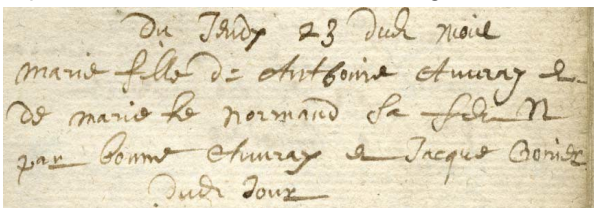 Du Jeudy 23 dud moie
marie fille de Anthoine Auvray &
de marie le normand sa fee N
par bonne Auvray et Jacque
dud Jour